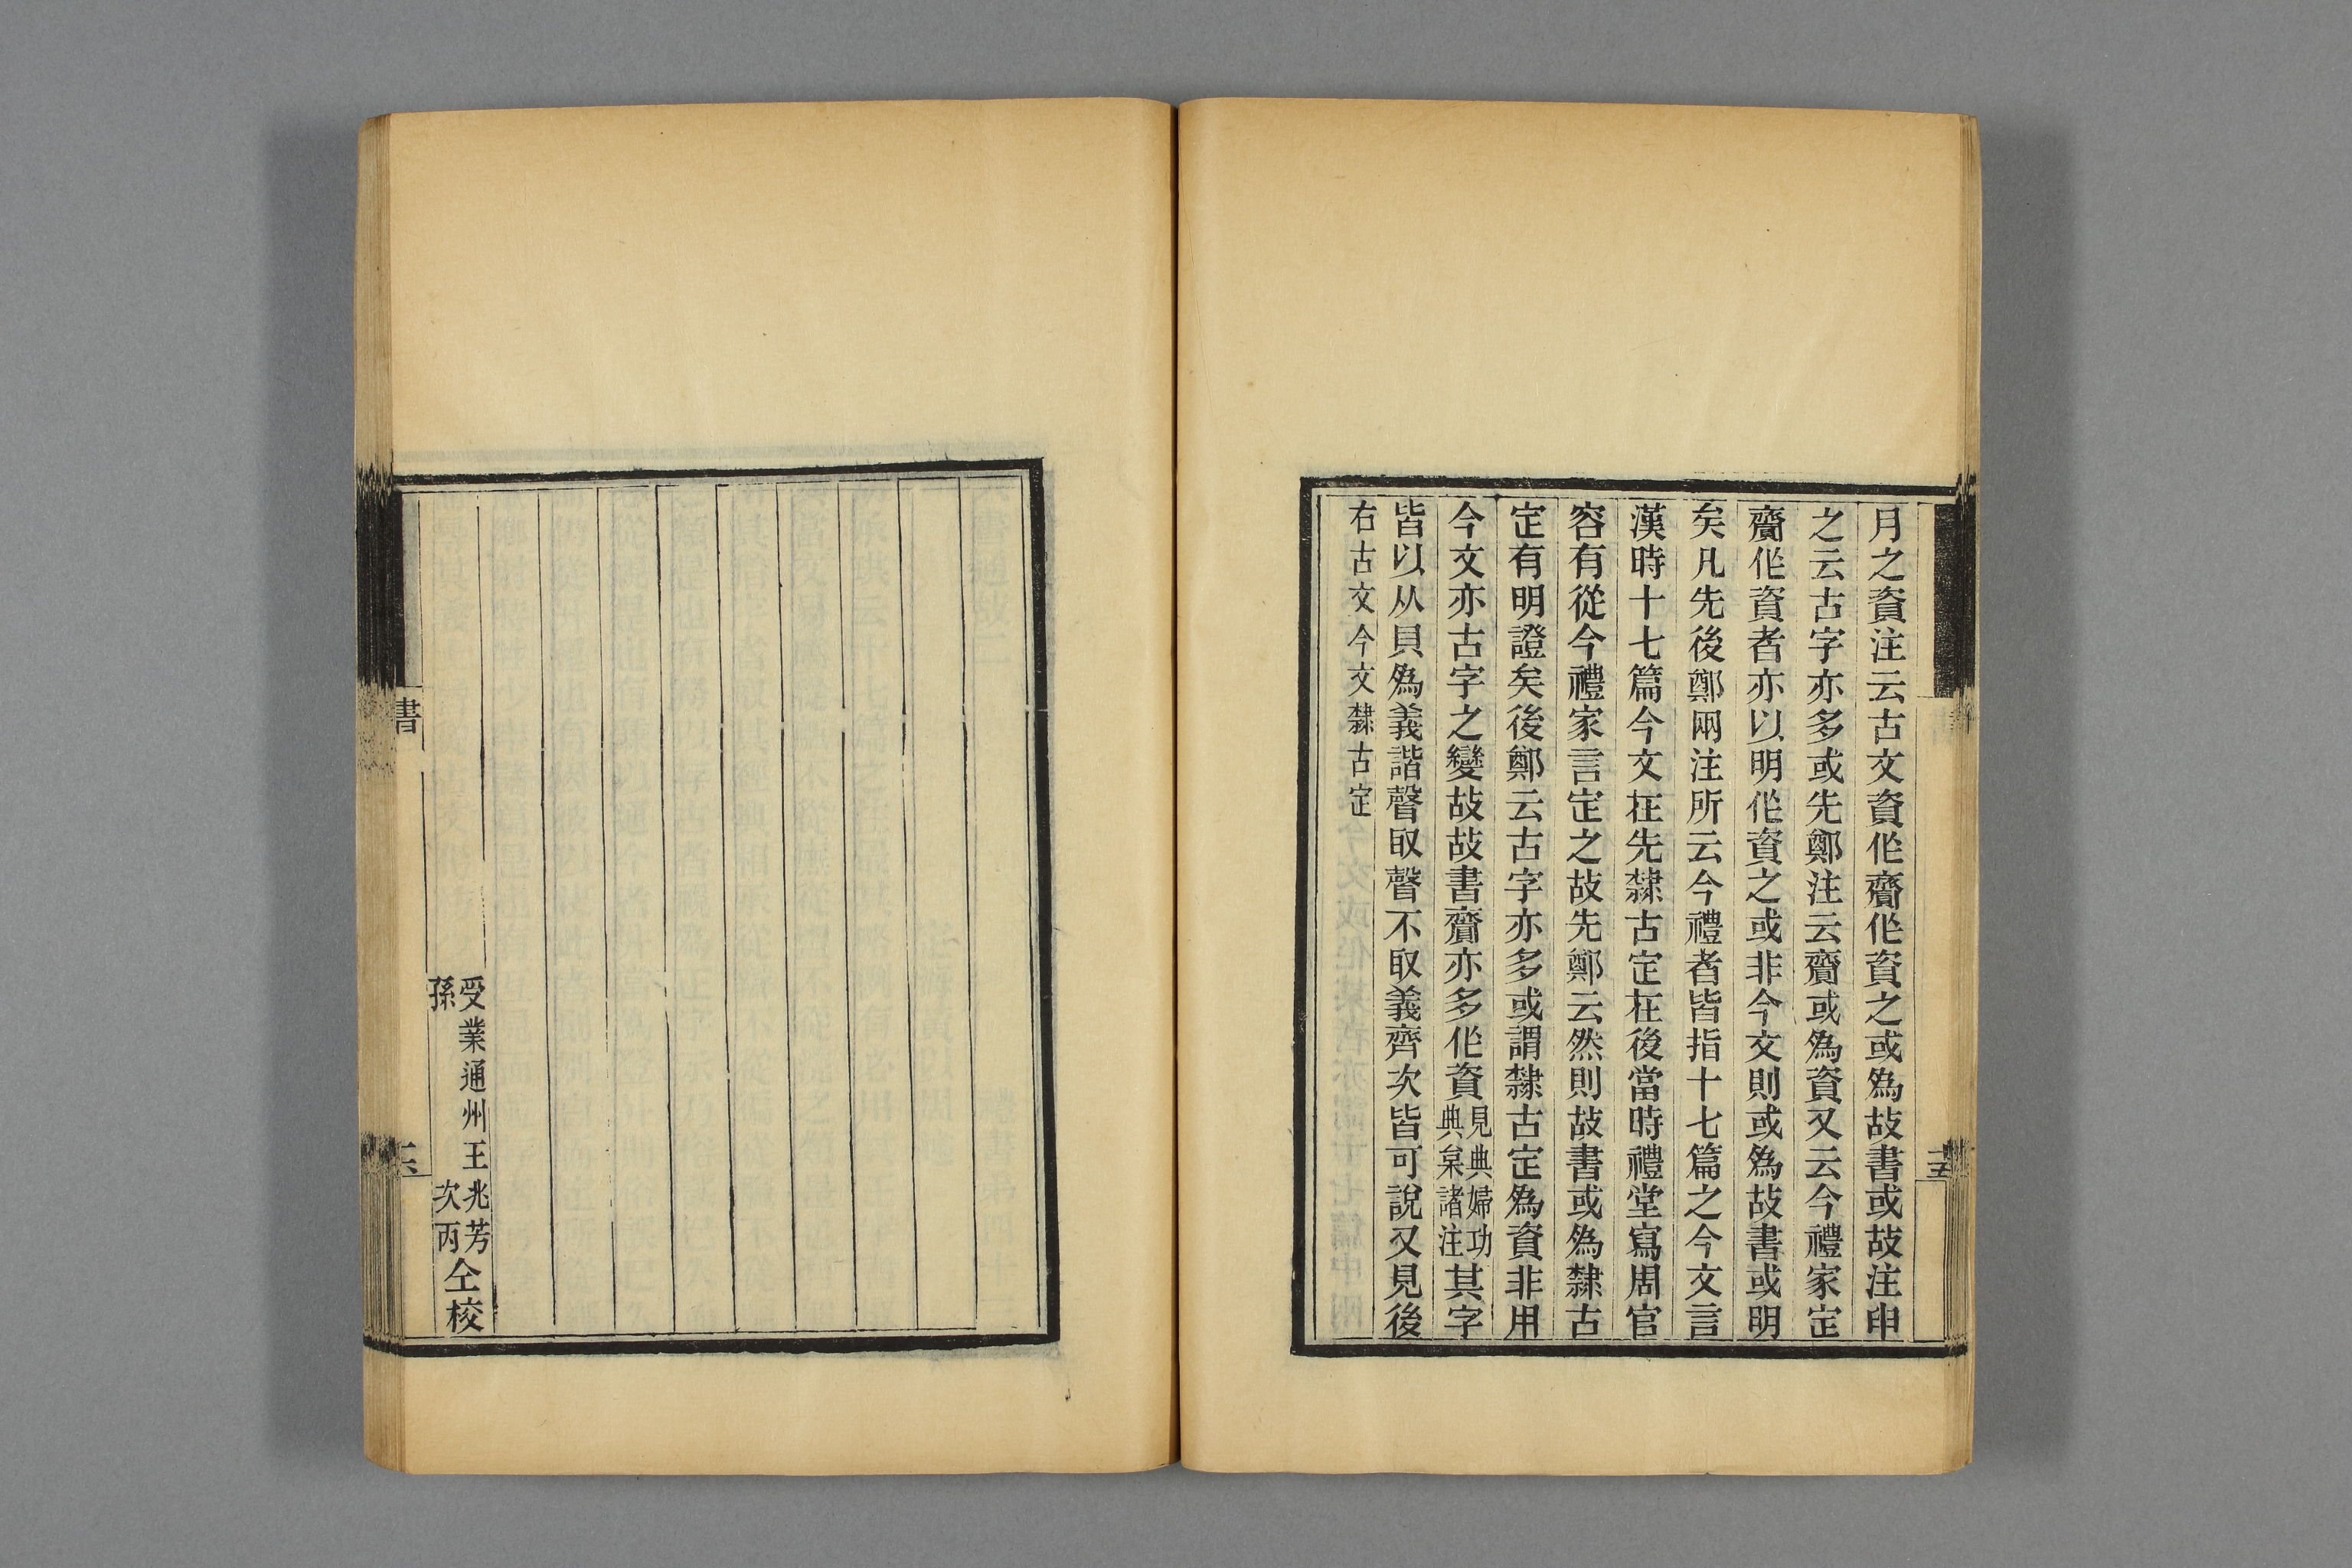 月之資注云古文資作齎作資之或爲故書或故注申
之云古字亦多或先鄭注云齎或爲資又云今禮家定
齎作資者亦以明作資之或非今文則或爲故書或明
矣凡先後鄭兩注所云今禮者皆指十七篇之今文言
漢時十七篇今文在先隸古定在後當時禮堂寫周官
容有從今禮家言定之故先鄭云然則故書或爲隸古
定有明證矣後鄭云古字亦多或謂隸古定爲資非用
今文亦古字之變故故書齎亦多作資見典婦功典枲諸注其字
皆以从貝爲義諧聲取聲不取義齊次皆可說又見後
右古文今文隸古定
受業通州王兆芳
孫次丙
仝校
書